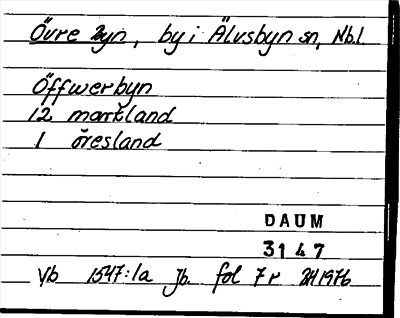 Övre Byn, by i Älvsbyn sn, Nb.l.
Öffwerbyn
12 markland
1 öresland
DAUM
3147
Vb 1547:1a Jb. fol 7r 2H1976